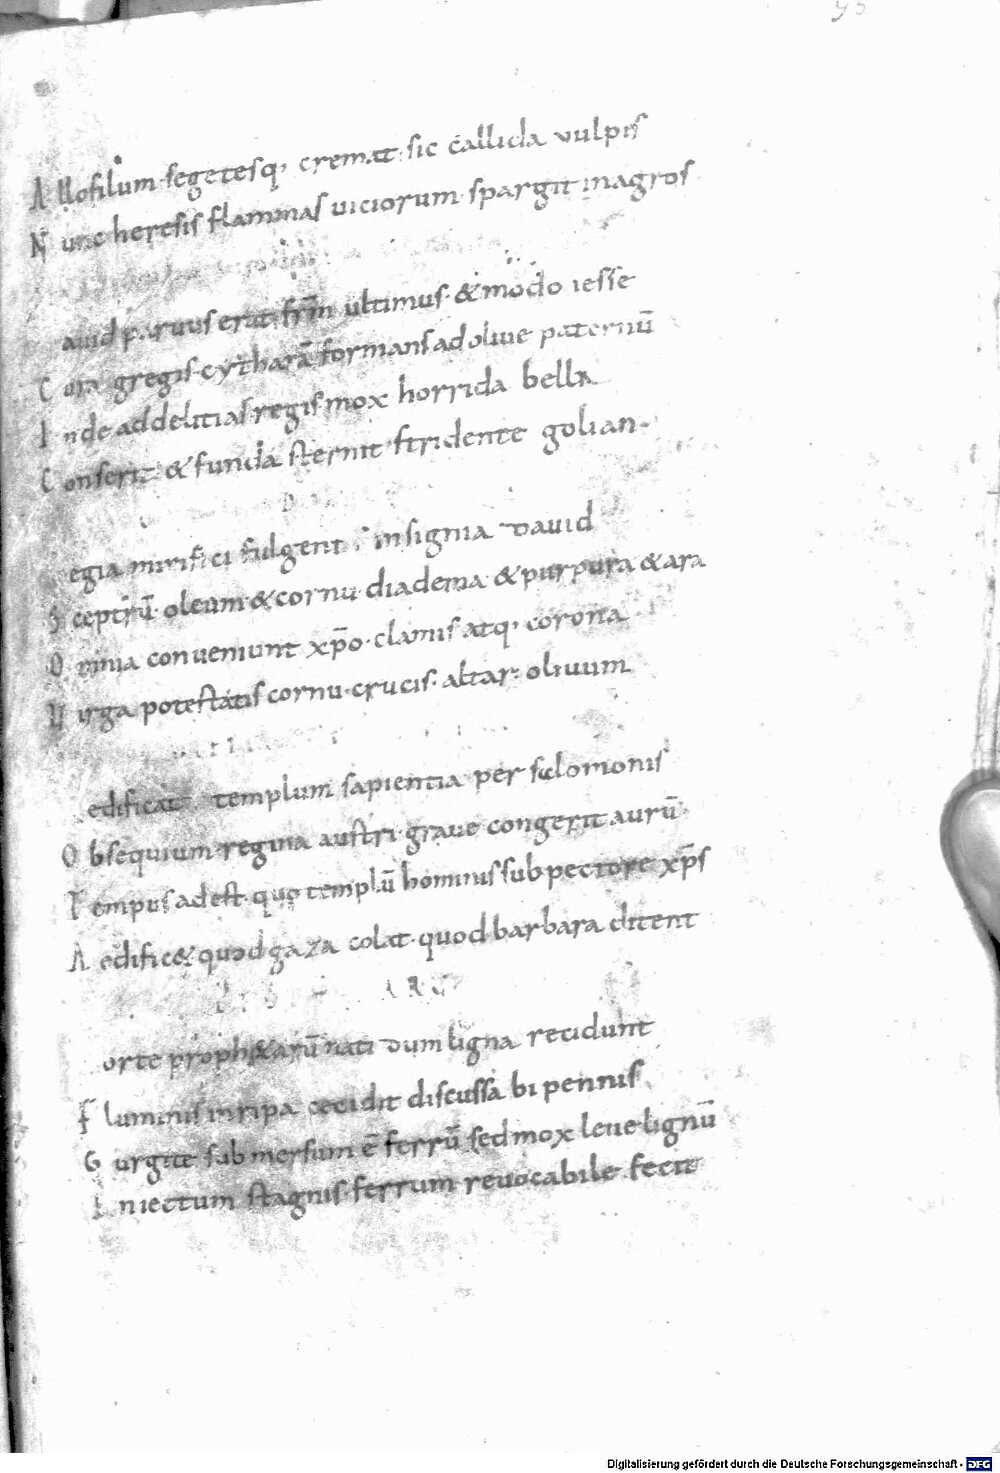 95
Allofilum· segetesq; cremat· sic callida vulpis
Nunc heresis flammas uiciorum· spargit in agros·
auid paruus erat· fr̄m ultimus· & modo iesse
Cura gregis· cytharā formans ad oliue paternū
Inde ad delitias regis mox horrida bella
Conserit· & funda sternit stridente golian·
egia mirifici fulgent· insignia dauid
Sceptrū· oleum· & cornu· diadema & purpura & ara
Omnia conueniunt xp̄o· clamis atq; corona
Uirga potestatis cornu· crucis· altar· oliuum
edificat templum sapientia per solomonis
Obsequium· regina austri· graue congerit aurū·
Tempus adest· quo templū hominis sub pectore xp̄s
Aedific& quod gaza colat· quod barbara ditent
orte proph&arū nati dum ligna recidunt
Fluminis in ripa cecidit discussa bipennis
Gurgite submersum ē ferrū· sed mox leue lignū
Iniectum stagnis· ferrum reuocabile fecit
Digitalisierung gefördert durch die Deutsche Forschungsgemeinschaft - DFG